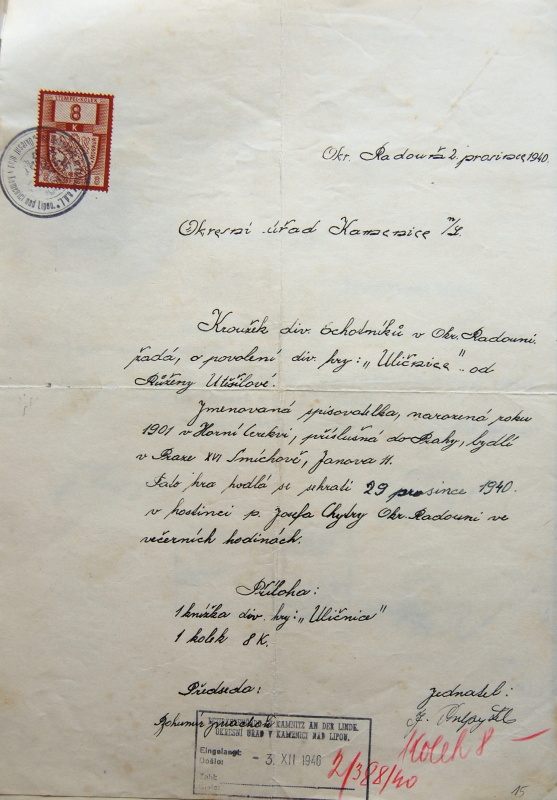 STEMPEL-KOLEK
8
K
Okr. Radouň 2. prosince 1940.
Okresní úřad Kamenice n/L.
Kroužek div. ochotníků v Okr. Radouni.
řádá, o povolení div. hry: „Uličnice" od
Růženy Utěšilové.
Jmenovaná spisovatelka, narozená roku
1901 v Horní Cerekvi, příslušná do Prahy, bydlí
v Praze XVI Smíchově, Janova 11.
Tato hra hodlá se sehráti 29 prosince 1940.
v hostinci p. Josefa Chytry Okr. Radouni ve
večerních hodinách.
Příloha:
1 knížka div. hry: „Uličnice"
1 kolek 8 K.
Předseda:
Jednatel:
Bohumír
KAMNITZ AN DER LINDE.
OKRESNÍ ÚŘAD V KAMENICI NAD LIPOU.
Eingelangt:
Došlo:
- 3. XII 1940
Zahl:
2/388/40
Kolek 8 —
15